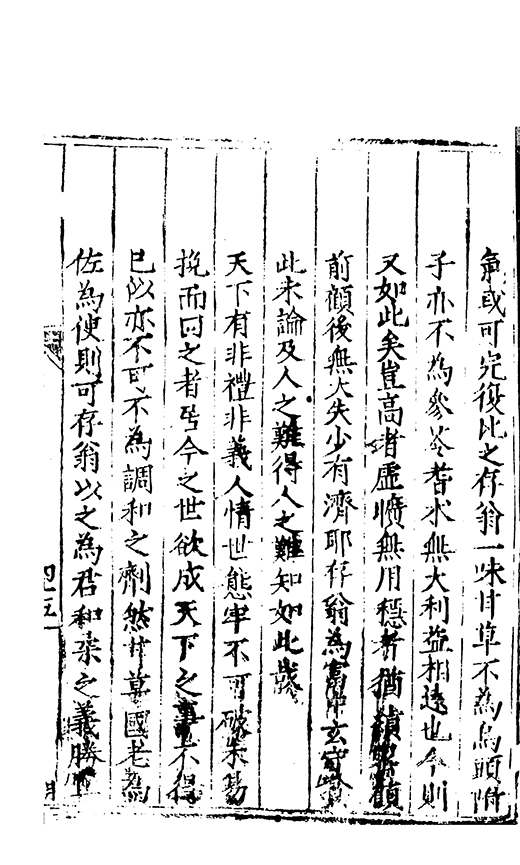 氣或可完復比之存翁一味甘草不為烏頭附
子亦不為參苓蓍朮無大利益相遠也今則
又如此矣豈高者虛曠無用穩者猶
前顧後無大失少有濟耶存翁為
此未論及人之難得人之難知如此哉
天下有非禮非義人情世態牢不可破未易
挽而回之者居今之世欲成天下之事不得
已以亦不可不為調和之劑然甘草國老為
佐為使則可存翁以之為君和柔之義勝